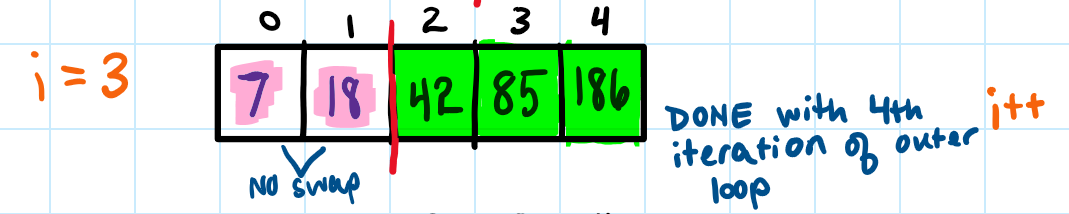 0 1 2 3 4
i = 3
7 18 42 85 186
NO swap
DONE with 4th
iteration of outer
loop
i++